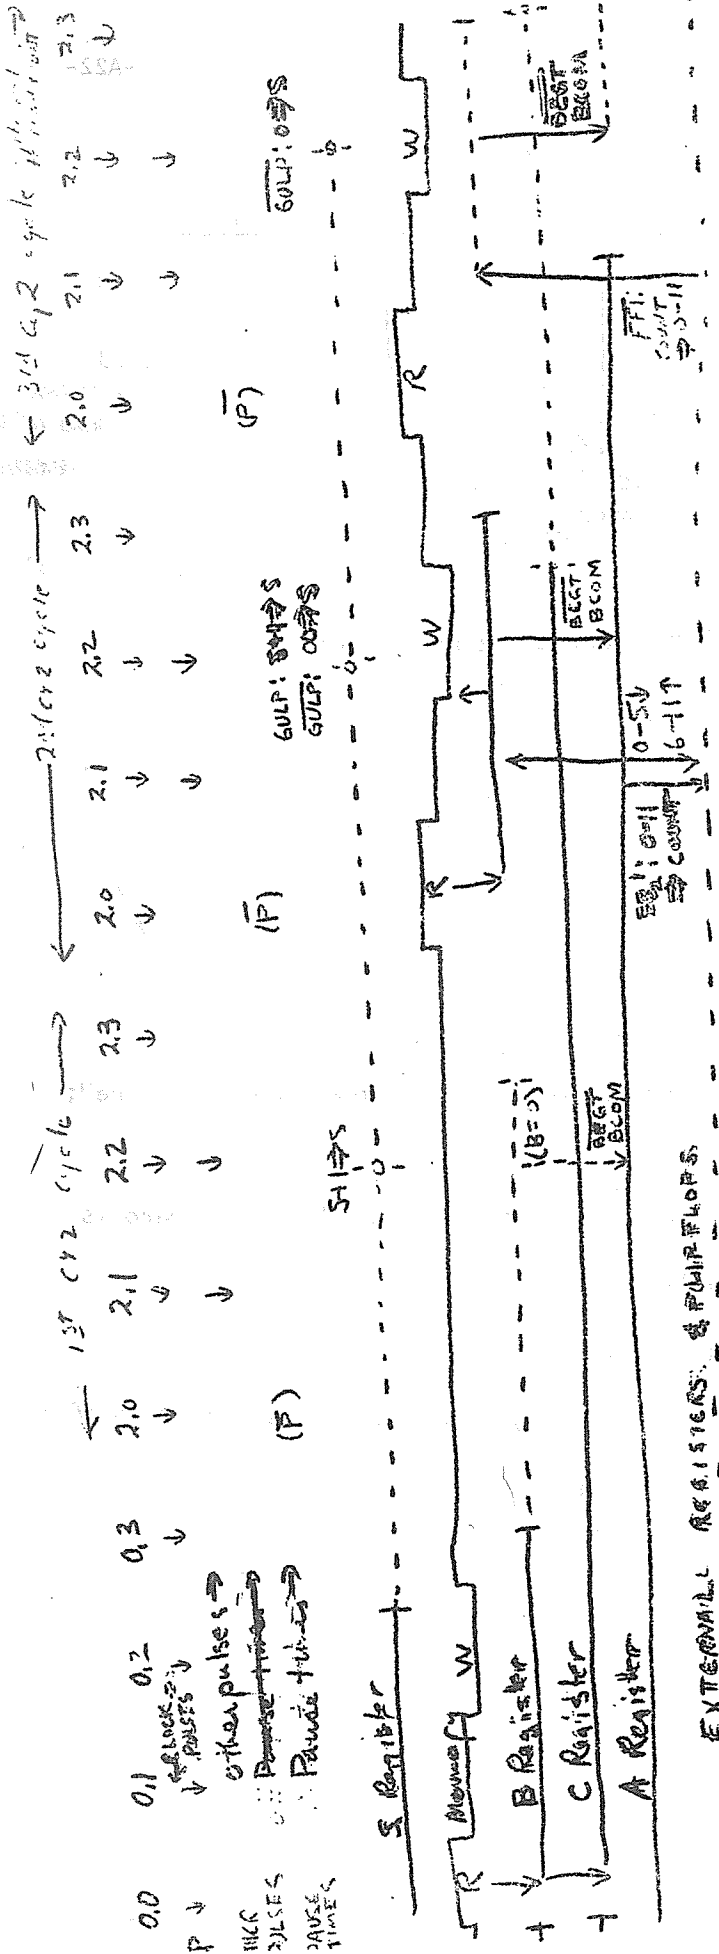 ← 1ST CY2 cycle → ← 2nd cy2 cycle → ← 3rd cy 2 cycle
0.0 0.1 0.2 0.3 2.0 2.1 2.2 2.3 2.0 2.1 2.2 2.3 2.0 2.1 2.2 2.3
P CLOCK PULSES
other pulses →
Pause times →
PULSES
PAUSE TIMES
(P) (P̅) (P̅)
S+1⇒S
GULP: S+1⇒S
G̅U̅L̅P̅: 00⇒S
G̅U̅L̅P̅: 0⇒S
S Register
Memory W R W R W
R
B Register (B=0)
C Register
B̅E̅G̅T̅ BCOM
B̅E̅G̅T̅ BCOM
B̅E̅G̅T̅ BCOM
A Register
0-5↓
6-11↑
0-11 ⇒ COUNT
FF1: COUNT ⇒ 0-11
EXTERNAL REGISTERS & FLIPFLOPS
-A22-